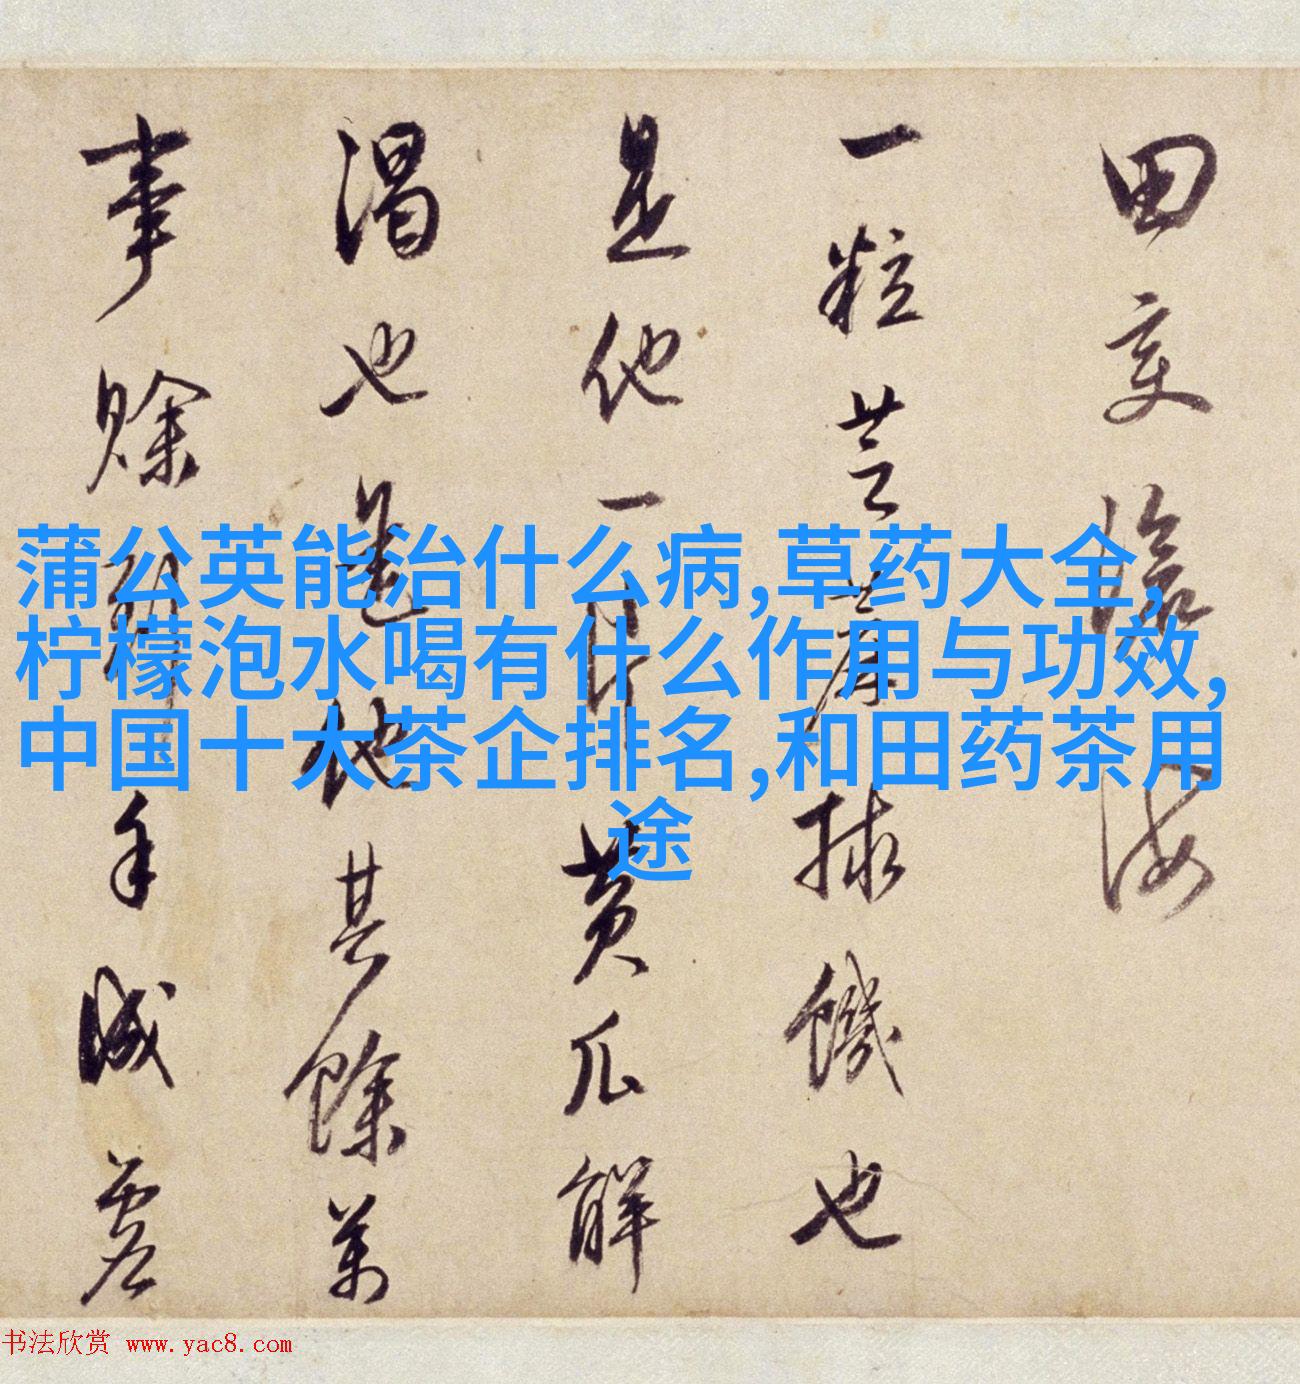 田变滄海
一粒芝麻捄饑也
是他一片黄瓜解
渴也是他其餘萬
事賒手
蒲公英能治什么病,草药大全,
柠檬泡水喝有什么作用与功效,
中国十大茶企排名,和田药茶用
途
书法欣赏 www.yac8.com